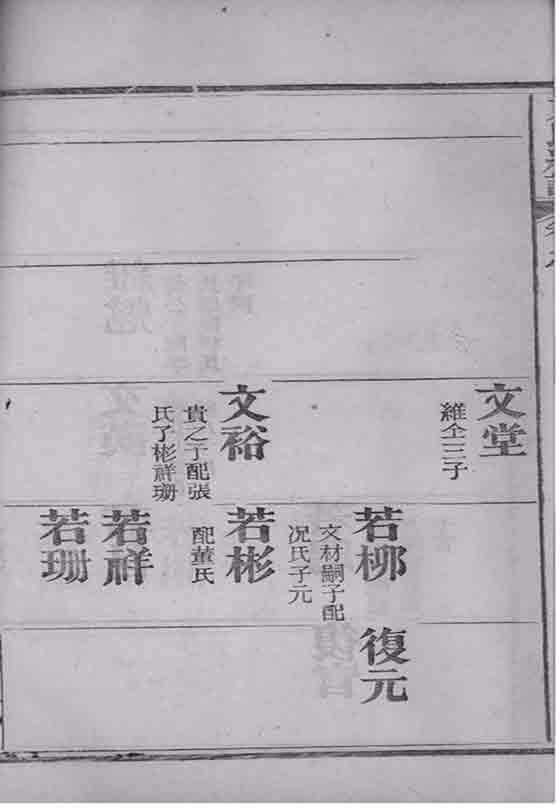 文堂
維全三子
文裕
貴之子配張
氏子彬祥珊
若栁
文材嗣子配
况氏子元
若彬
配董氏
若祥
若珊
復元